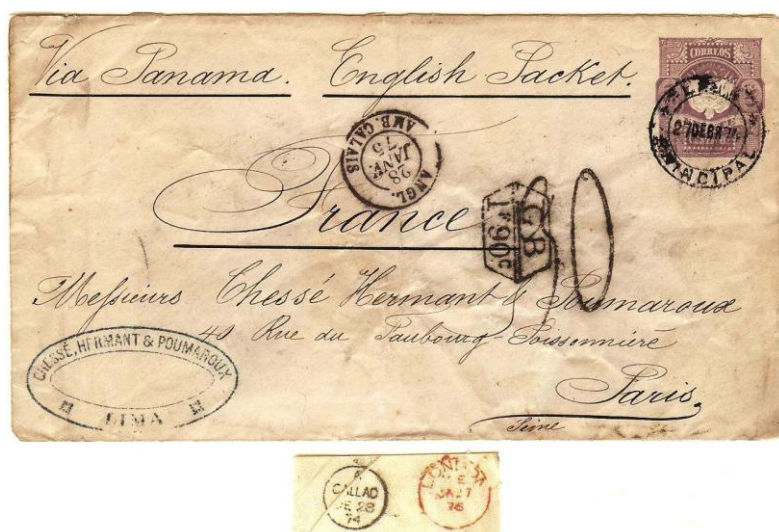 Via Panama. English Packet.
CORREOS
LIMA
27 DE
PRINCIPAL
ANGL.
28
JANV
75
AMB. CALAIS
France
GB
1F90c
Messieurs Chessé Hermant & Poumaroux
40 Rue du Faubourg-Poissonnière
Paris
Seine
CHESSÉ, HERMANT & POUMAROUX
LIMA
A
CALLAO
DE 28
74
LONDON
JA 27
75